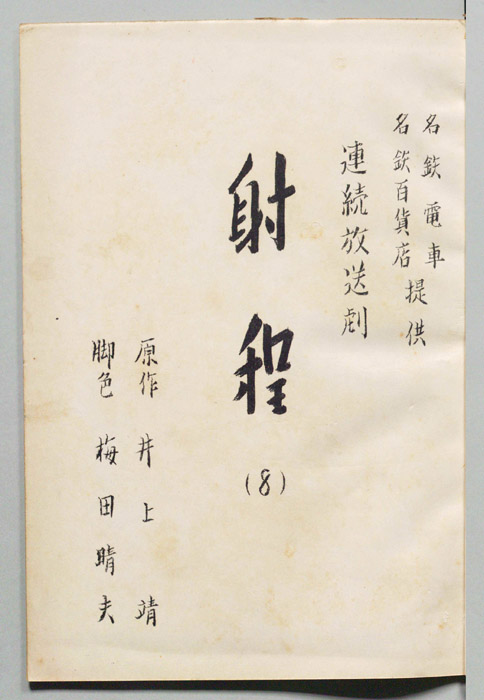 名鉄電車
名鉄百貨店 提供
連続放送劇
射程
(8)
原作 井上靖
脚色 梅田晴夫